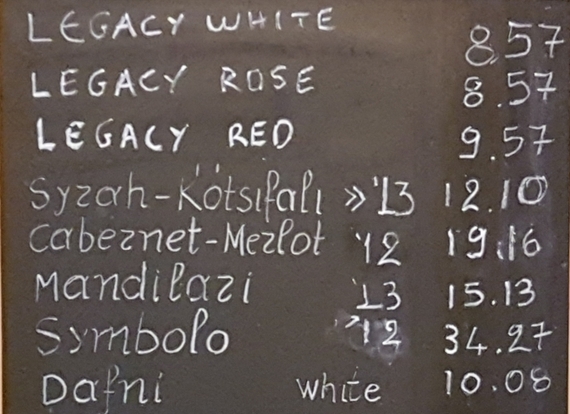 LEGACY WHITE 8.57
LEGACY ROSE 8.57
LEGACY RED 9.57
Syrah-Kótsifali »'13 12.10
Cabernet-Merlot '12 19.16
Mandilari '13 15.13
Symbolo '12 34.27
Dafni White 10.08